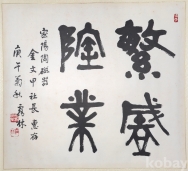 繁盛
隆業
陽陶磁器
金文甲社長 惠存
庚午菊秋 林
kobay